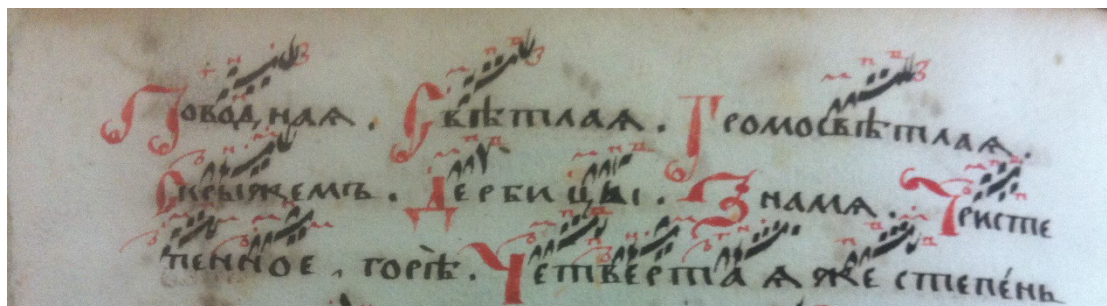 Поводная. Свѣтлая. Громосвѣтлая.
Скрыжемъ. Дербицы. Знамя. Тристе
пенное, горѣ̀. Четвертая же степе́нь